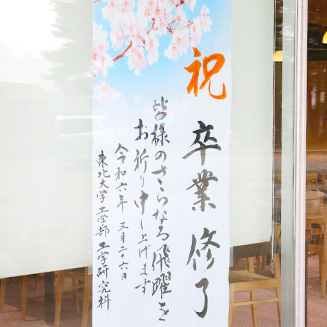 祝 卒業 修了
皆様のさらなる飛躍を
お祈り申し上げます
令和六年 三月二十六日
東北大学 工学部 工学研究科